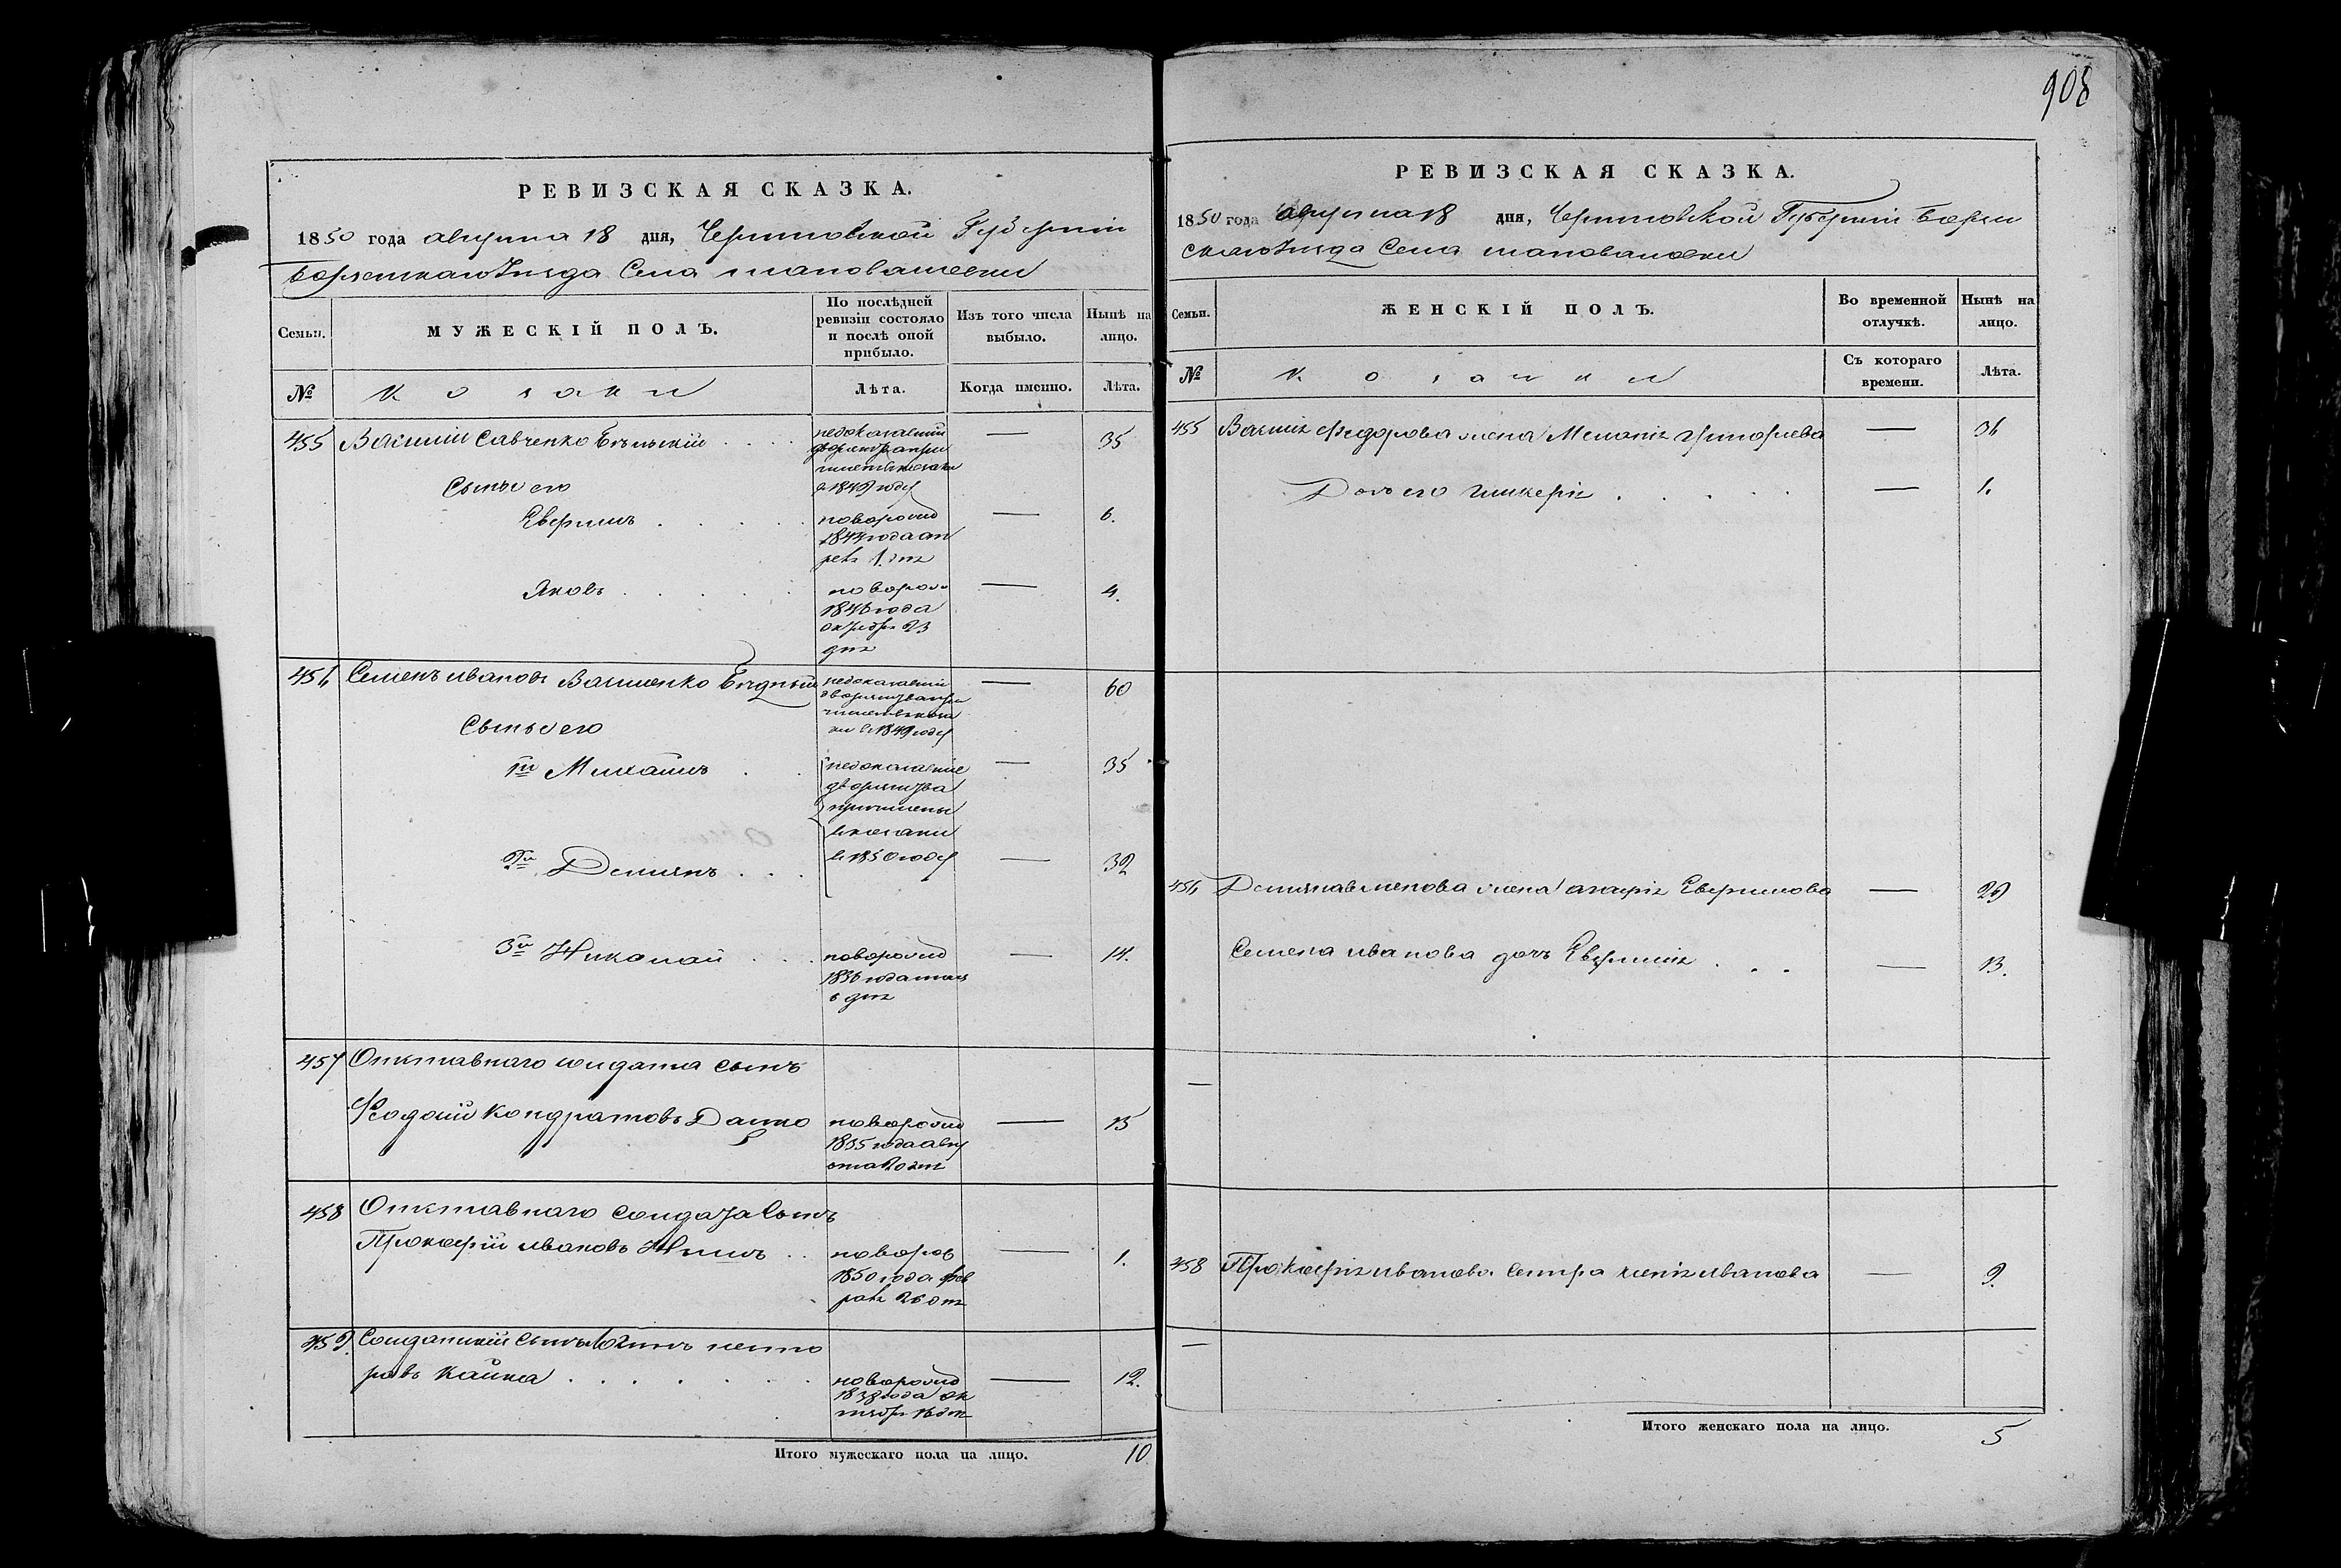 908
РЕВИЗСКАЯ СКАЗКА.
1850 года августа 18 дня, Черниговской Губернии
Борзенского уезда Села
Семьи. МУЖЕСКІЙ ПОЛЪ. По послѣдней ревизіи состояло и послѣ оной прибыло. Изъ того числа выбыло. Нынѣ на лицо.
№ Козаки Лѣта. Когда именно. Лѣта.
455 Василий Савченко — 35
недоказавший
дворянства при
численъ в козаки
в 1849 году
Сыны его
новорожд — 6.
1844 года ап
реля 1. дня
Яковъ новорож — 4.
1846 года
октября 23
дня
456 Семенъ Ивановъ Василенко Бѣдный — 60
недоказавший
дворянства при
численъ в коза
ки в 1849 году
Сыны его
1й Михаилъ недоказавшие — 35
дворянства
причислены
в козаки
2й Демянъ в 1850 году — 32
3й Николай новорожд — 14.
1836 года
6 дня
457 Отставнаго солдата сынъ
Феодосий Кондратовъ новорожд — 15
1835 года авгу
ста 20 дня
458 Отставнаго солдата сынъ
Прокофий Ивановъ новорож — 1.
1850 года фев
раля 26 дня
459. Солдатский сынъ
новорожд — 12.
1838 года ок
тября 16 дня
Итого мужескаго пола на лицо. 10
РЕВИЗСКАЯ СКАЗКА.
1850 года августа 18 дня, Черниговской Губернии Борзен
ского уезда Села
Семьи. ЖЕНСКІЙ ПОЛЪ. Во временной отлучкѣ. Нынѣ на лицо.
№ Козачки Съ котораго времени. Лѣта.
455 Василия Федорова жена Мелания Григориева — 36
Дочь его Гликерия — 1.
456 Демяна Семенова жена Агафия — 29
Семена Иванова дочь — 13.
—
458 Прокофия Иванова сестра Иванова — 9.
—
Итого женскаго пола на лицо. 5